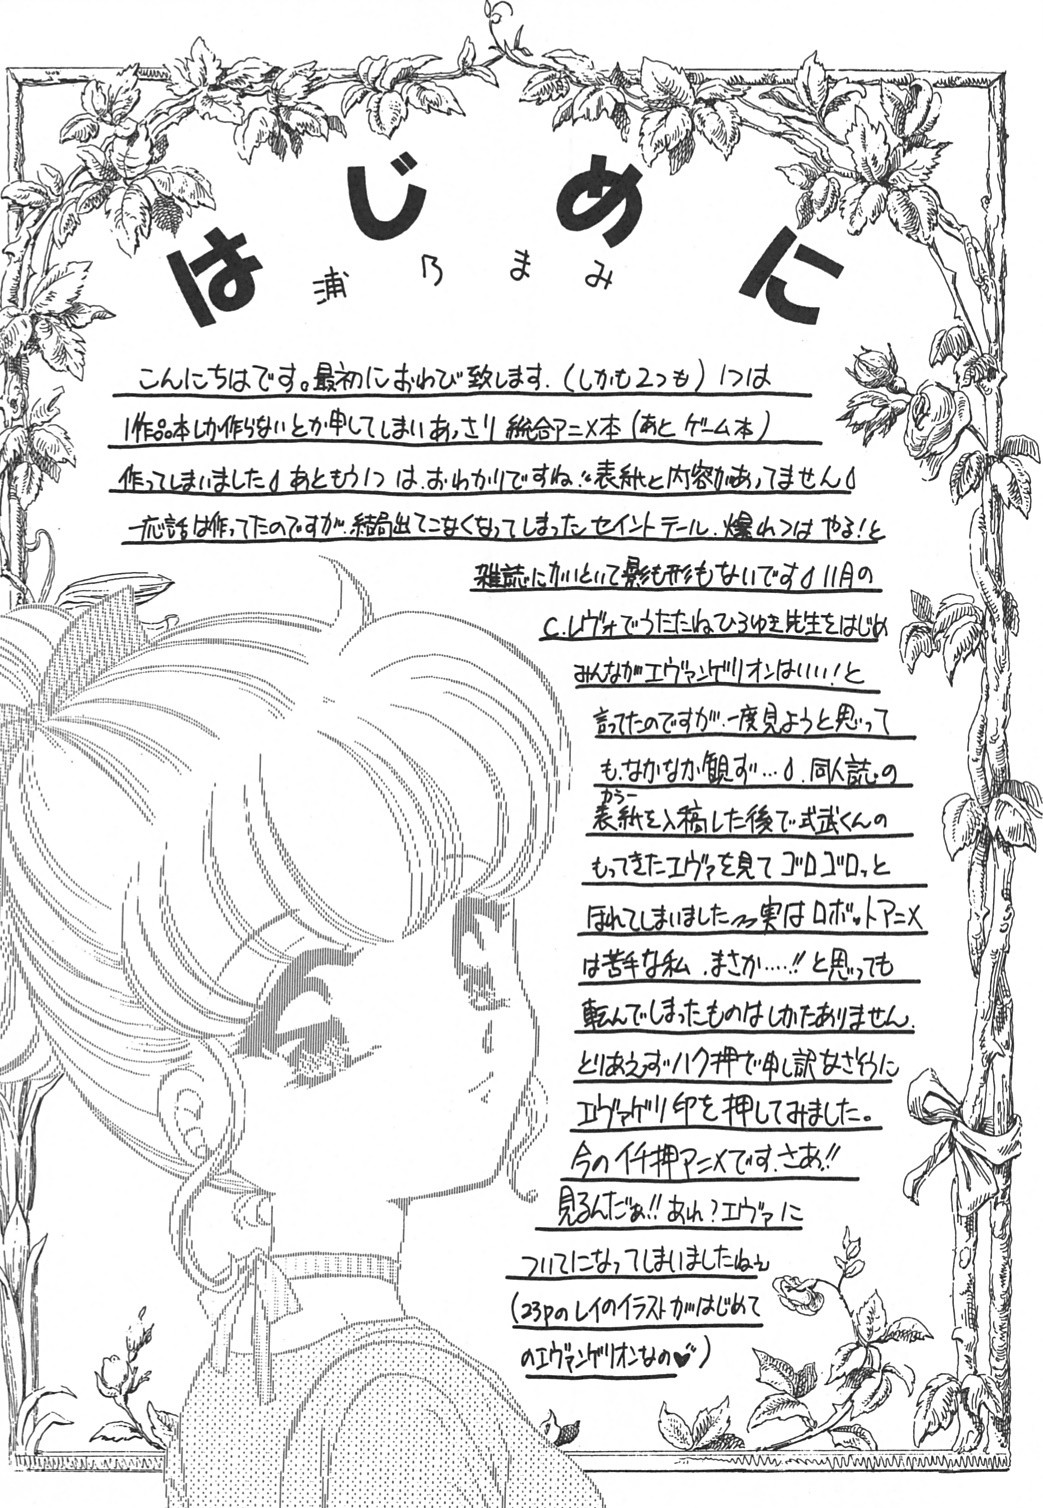 はじめに
浦乃まみ
こんにちはです。最初におわび致します.(しかも2つも)1つは
1作品本しか作らないとか申してしまいあっさり総合アニメ本(あとゲーム本)
作ってしまいました あともう1つは.おわかりですね.“表紙と内容があってません
一応話は作ってたのですが.結局出てこなくなってしまったセイントテール.爆れつはやる!と
雑誌にかいといて影も形もないです 11月の
C.レヴォでうたたねひろゆき先生をはじめ
みんながエヴァンゲリオンはいい!と
言ってたのですが.一度見ようと思って
も.なかなか観ず…。同人誌の
カラー
表紙を入稿した後で式武くんの
もってきたエヴァを見てゴロゴロッと
ほれてしまいました〜実はロボットアニメ
は苦手な私.まさか‥‥!!と思っても
転んでしまったものはしかたありません.
とりあえずハク押で申し訳なさそうに
エヴァゲリ印を押してみました。
今のイチ押アニメです.さあ!!
見るんだぁ!!あれ?エヴァに
ついてになってしまいましたねぇ
(23Pのレイのイラストがはじめて
のエヴァンゲリオンなの♥)